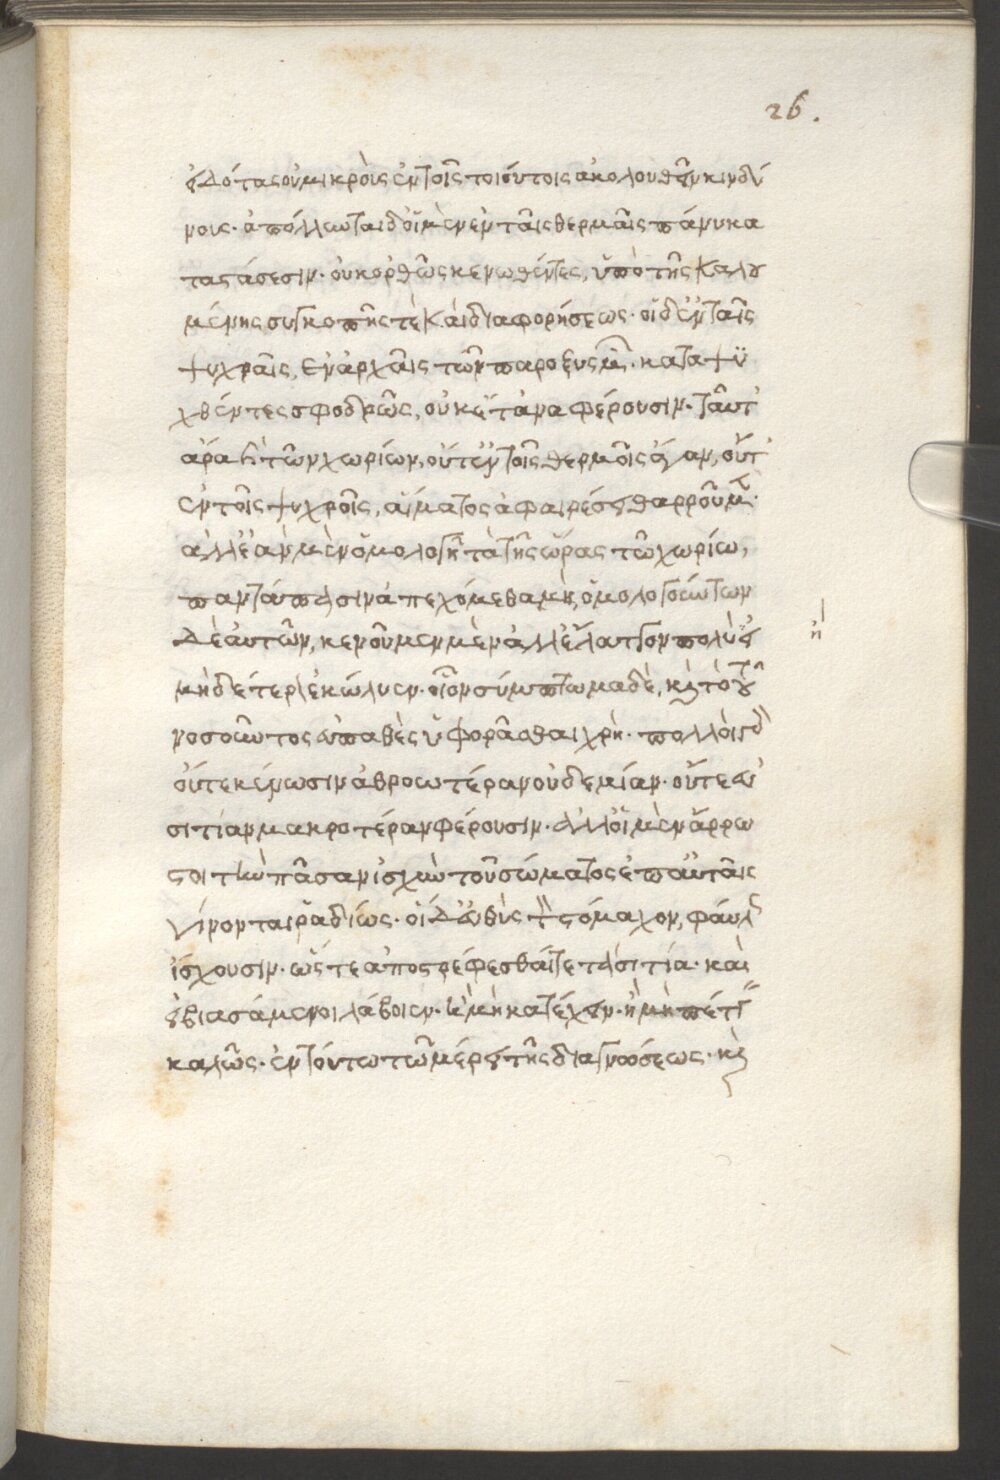 26.
εἰδότας οὐ μικροῖς ἐν τοῖς τοιούτοις ἀκολουθεῖν κινδύ
νοις· ἀπόλλωνται δ' οἱ μὲν ἐν ταῖς θερμαῖς πάνυ κα
τασάσεσιν· οὐκ ὀρθῶς κενωθέντες, ὑπὸ τῆς καλου
μένης συγκοπῆς τὲ καὶ διαφορήσεως· οἱ δ' ἐν ταῖς
ψυχραῖς, ἐν ἀρχαῖς τῶν παροξυσμῶν· καταψυ
χθέντες σφοδρῶς, οὐκ ἔτ' ἀναφέρουσιν· ταῦτ'
ἄρα καὶ τῶν χωρίων, οὔτ' ἐν τοῖς θερμοῖς ἄγαν, οὔτ'
ἐν τοῖς ψυχροῖς, αἵματος ἀφαιρέσει θαρροῦμεν·
ἀλλ' ἐὰν μὲν ὁμολογῆ τὰ τῆς ὥρας τῶ χωρίω,
παντάπασιν ἀπεχόμεθα μὴ ὁμολογούντων
δὲ αὐτῶν, κενοῦμεν μὲν ἀλλ' ἔλαττον πολὺ εἰ
ἢ
μηδέτερον ἐκώλυεν· οἷον σύμπτωμα δὲ, καὶ τὸ τοῦ
νοσοῦντος εὐπαθὲς ὑφορᾶσθαι χρὴ· πολλοὶ γὰρ
οὔτε κένωσιν ἀθροωτέραν οὐδεμίαν· οὔτε ἀ
σιτίαν μακροτέραν φέρουσιν· ἀλλ' οἱ μὲν ἄρρω
στοι τὴν πᾶσαν ἰσχὺν τοῦ σώματος ἐπ' αὐταῖς
γίνονται ῥαδίως· οἱ δ' εὐθὺς τὸν στόμαχον, φαύλως
ἴσχουσιν· ὥστε ἀποστρέφεσθαί γε τὰ σιτία· καὶ
εἰ βιασάμενοι λάβοιεν· ἢ μὴ κατέχειν· ἢ μὴ πέττειν
καλῶς· ἐν τούτω τῶ μέρει τῆς διαγνώσεως· καὶ